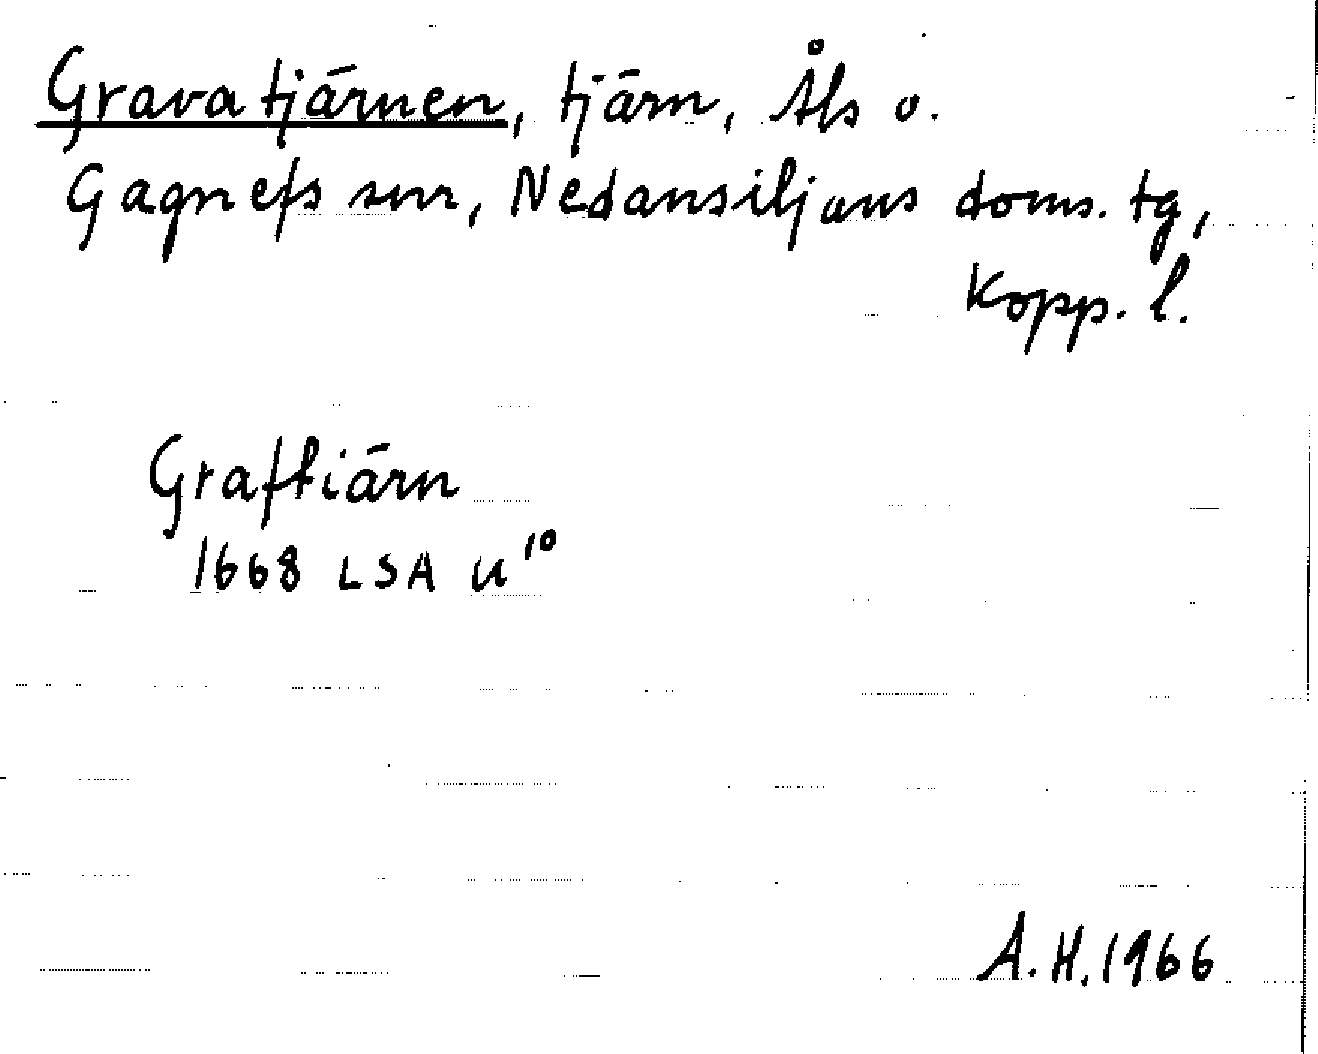 Gravatjärnen, tjärn, Åls o.
Gagnefs snr, Nedansiljans doms. tg,
Kopp. l.
Graftiärn
1668 LSA U 10
A.H. 1966